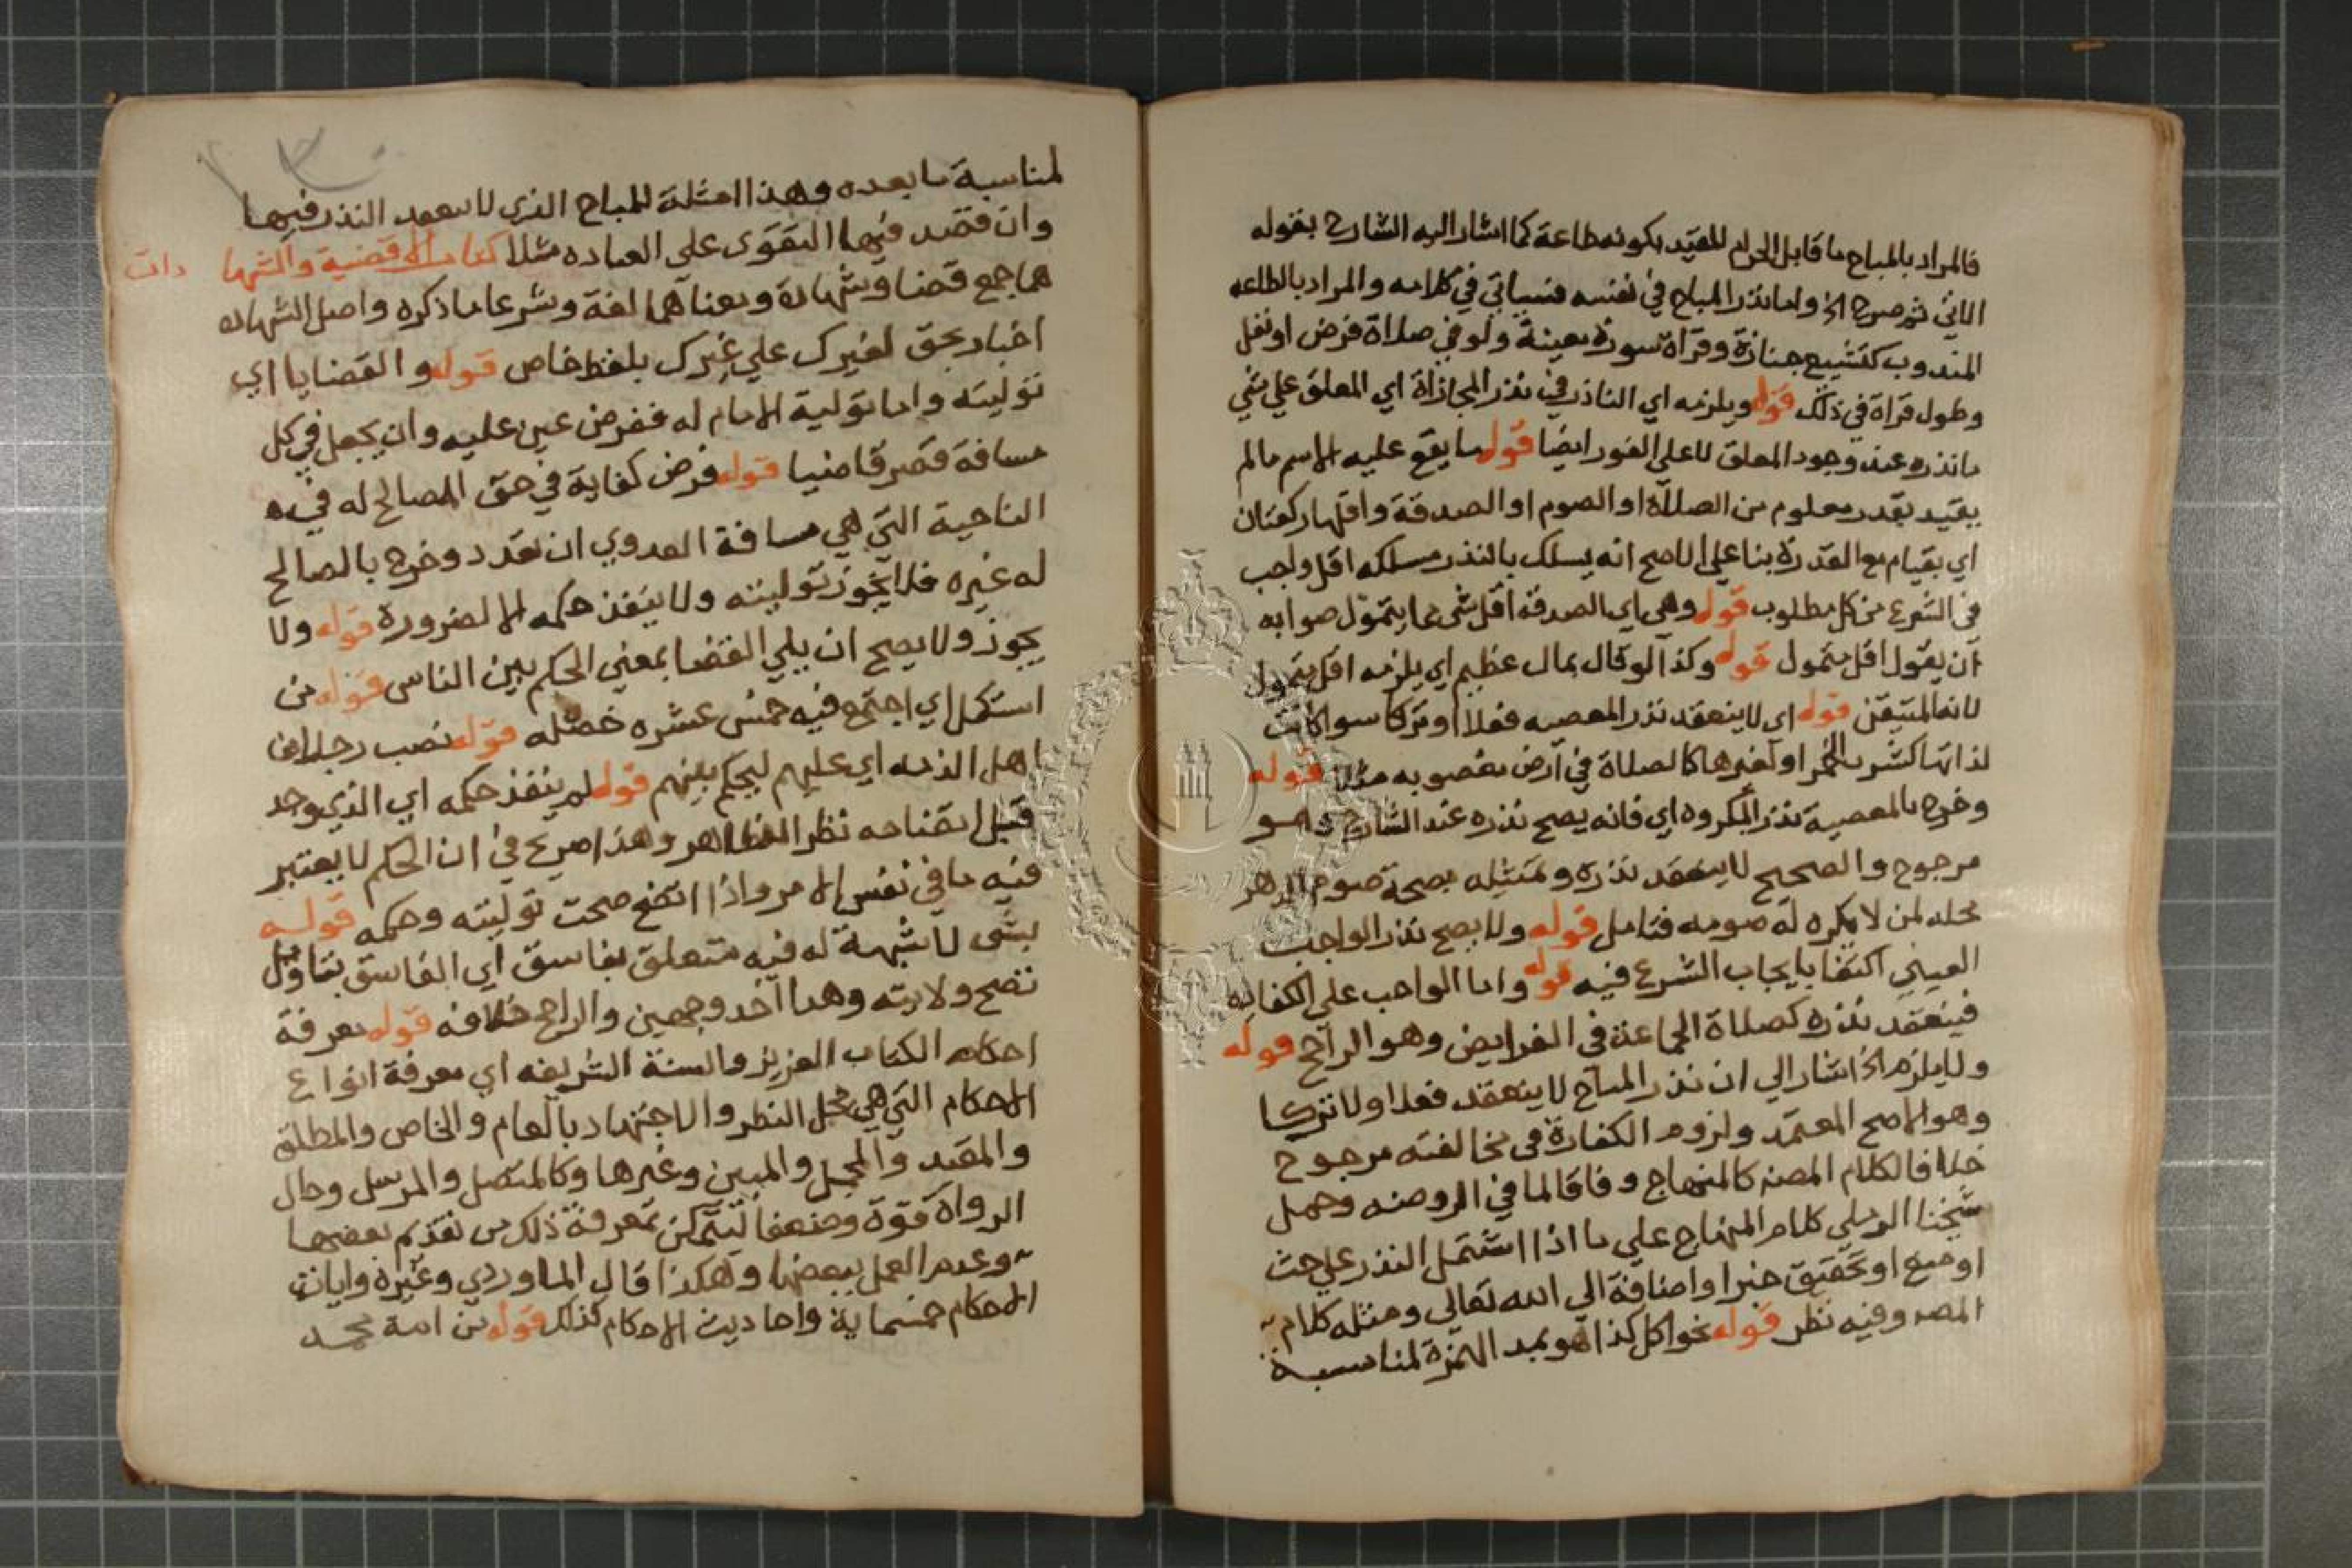 فالمراد بالمباح ما قابل الحرام للمقيد بكونه طاعة كما اشار اليه الشارح بقوله
الاتي ثم صرح الخ واما نذر المباح في نفسه فسياتي في كلامه والمراد بالطاعه
المندوب كتشييع جنازة وقراة سورة معينة ولو في صلاة فرض او نفل
وطول قراة في ذلك قوله ويلزمه اي الناذر في نذر المجازاة اي المعلق علي شي
ما نذره عند وجود المعلق لا علي الفور ايضا قوله ما يقع عليه الاسم ما لم
يقيد بقدر معلوم من الصلاة او الصوم او الصدقة واقلها ركعتان
اي بقيام مع القدرة بنا علي الاصح انه يسلك بالنذر مسلكه اقل واجب
في الشرع من كل مطلوب قوله وهي اي الصدقة اقل شي مما يتمول صوابه
ان يقول اقل متمول قوله وكذا لو قال بمال عظيم اي يلزمه اقل متمول
لانه المتيقن قوله اي لا ينعقد نذر المعصيه فعلا او تركا سوا كانت
لذاتها كشرب الخمر او لغيرها كالصلاة في ارض مغصوبه مثلا قوله
وخرج بالمعصية نذر المكروه اي فانه يصح نذره عند الشارح وهو
مرجوح والصحيح لا ينعقد نذره وتمثيله بصحة صوم الدهر
محله لمن لا يكره له صومه فتامل قوله ولا يصح نذر الواجب
العيني اكتفا بايجاب الشرع فيه قوله واما الواجب علي الكفايه
فينعقد نذره كصلاة الجماعة في الفرايض وهو الراجح قوله
ولا يلزم الخ اشار الي ان نذر المباح لا ينعقد فعلا ولا تركا
وهو الاصح المعتمد ولزوم الكفارة في مخالفته مرجوح
خلافا لكلام المصنه كالمنهاج وفاقا لما في الروضه وحمل
شيخنا الرملي كلام المنهاج علي ما اذا اشتمل النذر علي حث
او منع او تحقيق خبر او اضافة الي الله تعالي ومثله كلام
المصه وفيه نظر قوله نحو اكل كذا هو بمد الهمزة لمناسبة
لمناسبة ما بعده وهذا امثلة للمباح الذي لا ينعقد النذر فيها
وان قصد فيها التقوي علي العباده مثلا كتاب الاقضية والشهادات
هما جمع قضا وشهادة ومعناهما لغة وشرعا ما ذكره واصل الشهاده
اخبار بحق لغيرك علي غيرك بلفظ خاص قوله والقضايا اي
توليته واما تولية الامام له ففرض عين عليه وان يجعل في كل
مسافة قصر قاضيا قوله فرض كفاية في حق المصالح له في
الناحية التي هي مسافة العدوي ان تعدد وخرج بالصالح
له غيره فلا يجوز توليته ولا ينفذ حكمه الا لضرورة قوله ولا
يجوز ولا يصح ان يلي القضا بمعني الحكم بين الناس قوله من
استكمل اي اجتمع فيه خمس عشره خصله قوله نصب رجلا من
اهل الذمه اي عليهم ليحكم بينهم قوله لم ينفذ حكمه اي الذي وجد
قبل اتضاحه نظر الظاهر وهذا صريح في ان الحكم لا يعتبر
فيه ما في نفس الامر واذا اتضح صحت توليته وحكمه قوله
بشي لا شبهة له فيه متعلق بفاسق اي الفاسق بتاويل
تصح ولايته وهذا احد وجهين والراجح خلافه قوله معرفة
احكام الكتاب العزيز والسنة الشريفه اي معرفة انواع
الاحكام التي هي محل النظر والاجتهاد بالعام والخاص والمطلق
والمقيد والمجمل والمبين وغيرها وكالمتصل والمرسل وحال
الرواة قوة وضعفا ليتمكن بمعرفة ذلك من تقديم بعضها
وعدم العمل ببعضها وهكذا قال الماوردي وغيره وايات
الاحكام خمسماية واحاديث الاحكام كذلك قوله من امة محمد